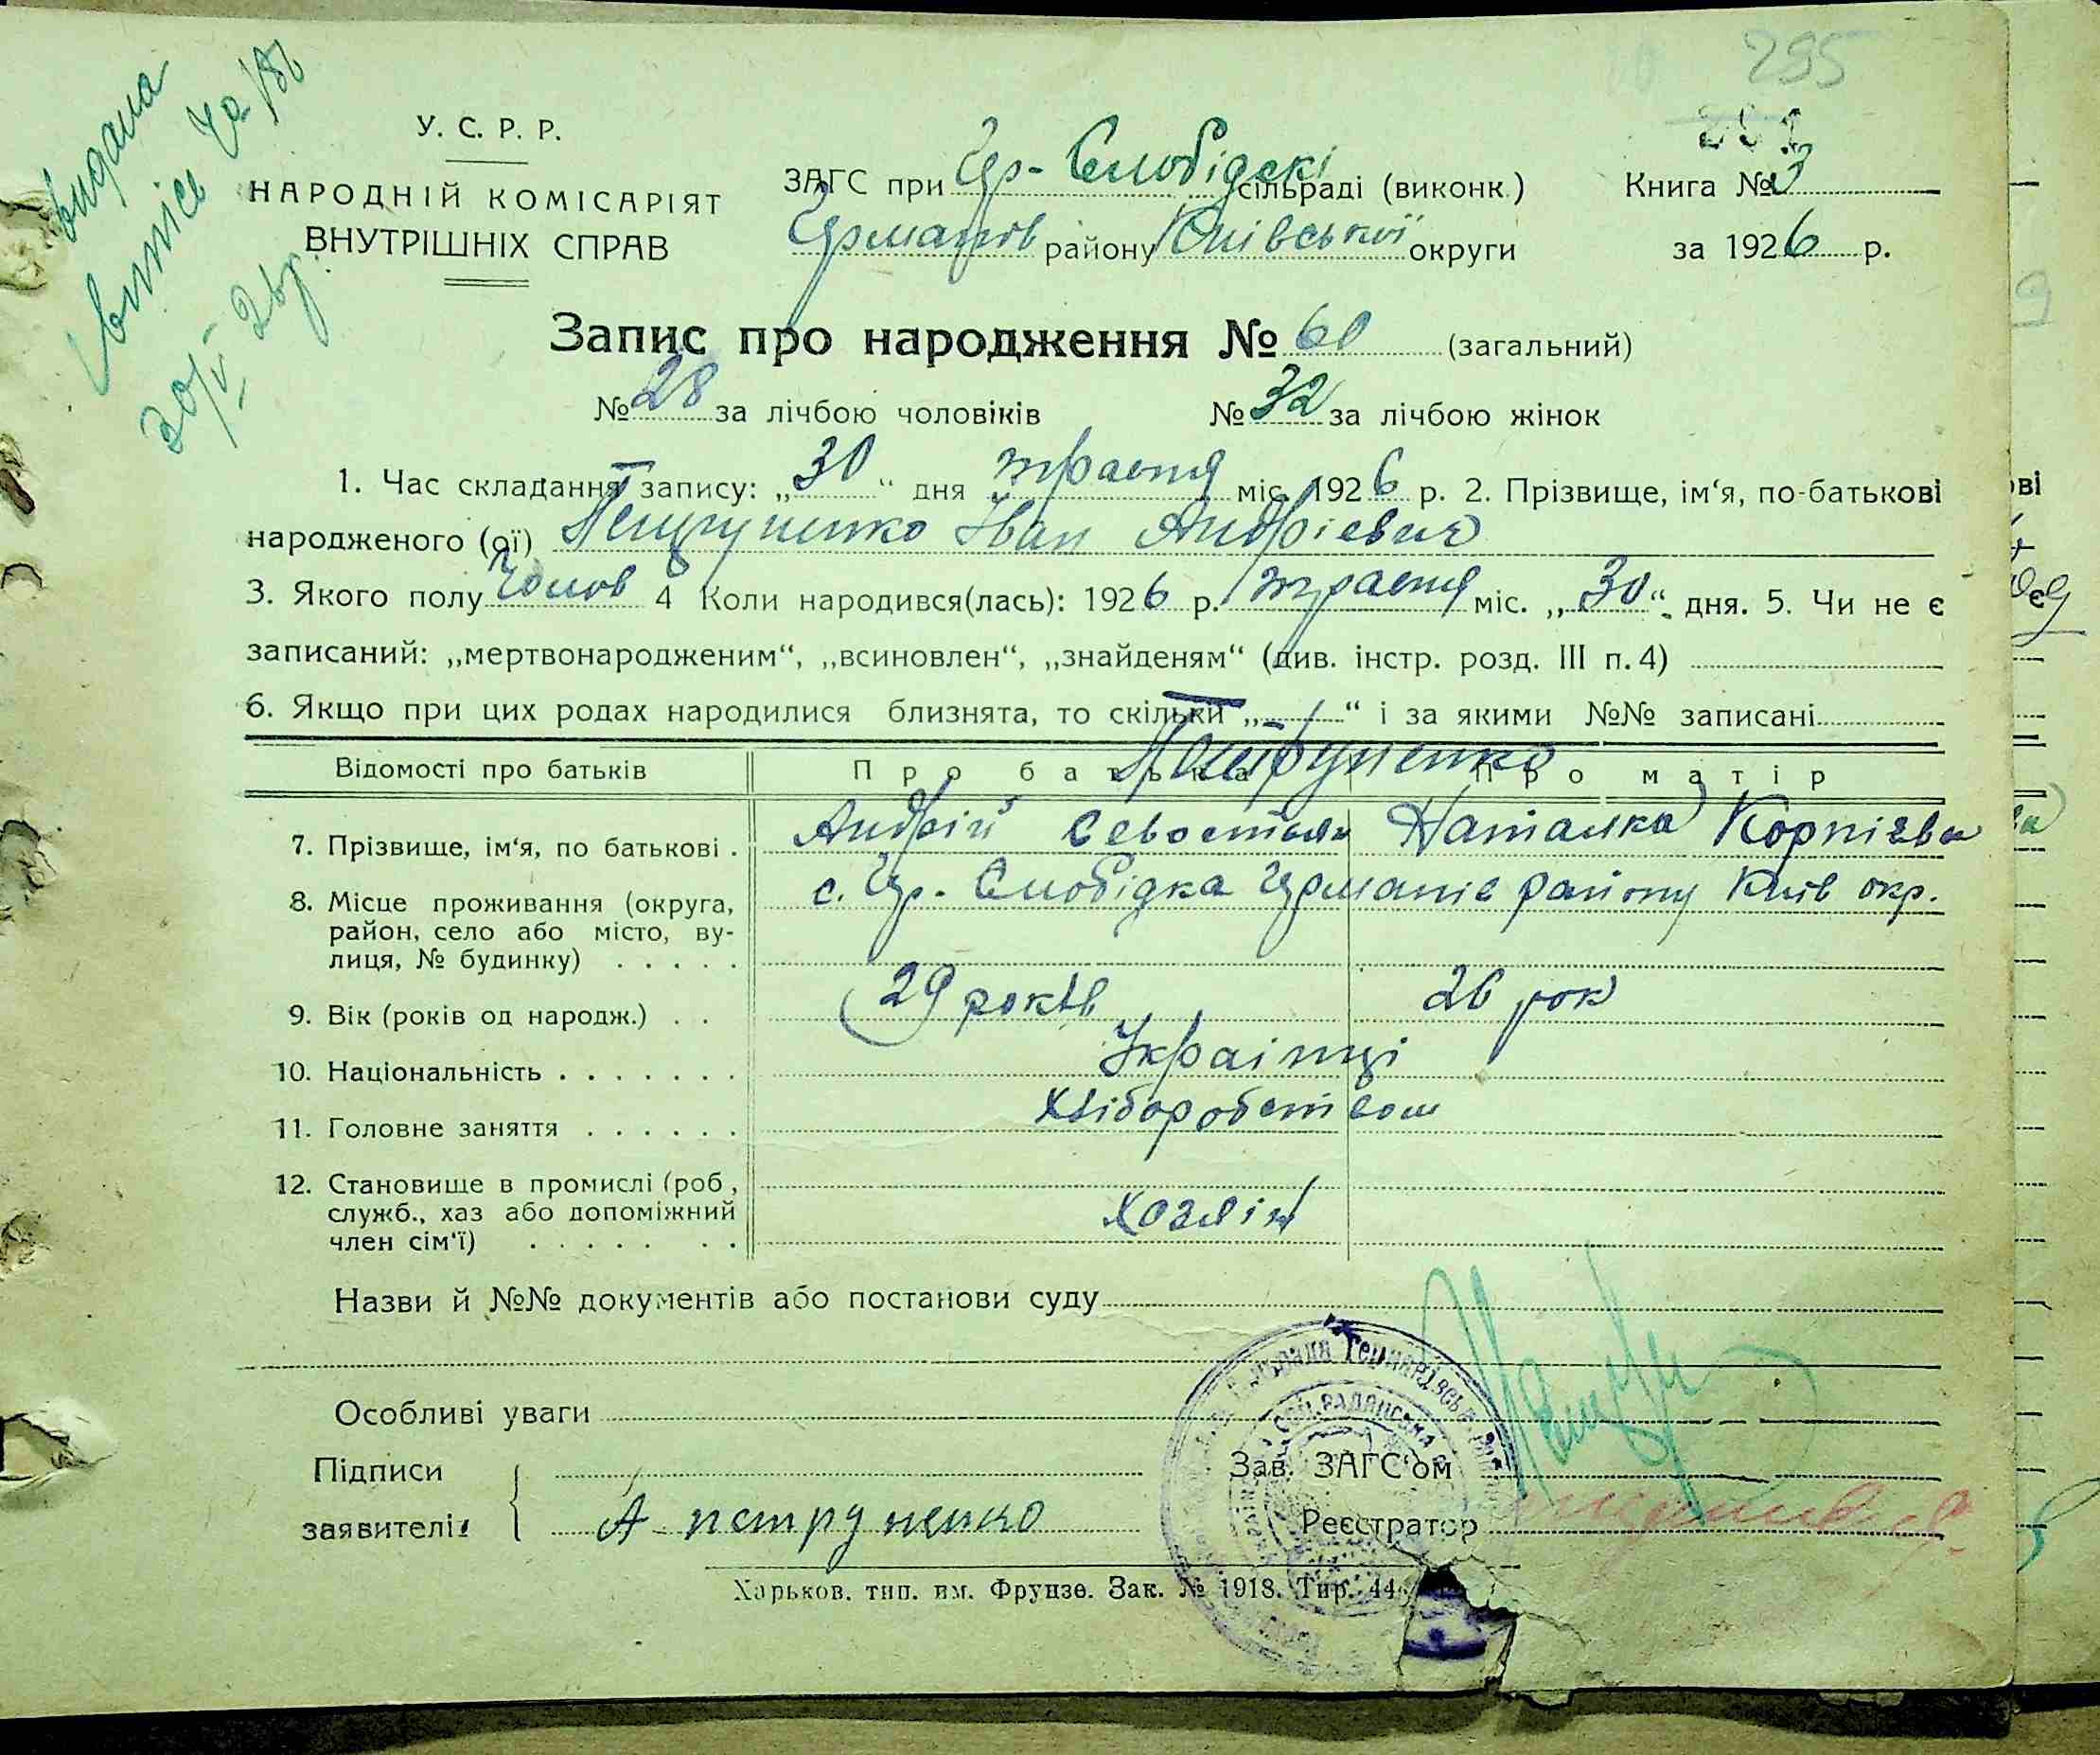 295
видана
витісь
30/V 26 р.
У. С. Р. Р.
НАРОДНІЙ КОМІСАРІЯТ
ВНУТРІШНІХ СПРАВ
ЗАГС при Гер-Слобідскі сільраді (виконк.)
Германів району Київської округи
Книга № 3
за 1926 р.
Запис про народження № 60 (загальний)
№ 28 за лічбою чоловіків № 32 за лічбою жінок
1. Час складання запису: „30“ дня траспя міс. 1926 р. 2. Прізвище, ім‘я, по-батькові
народженого (ої) Петруненко Іван Андрієвич
3. Якого полу Чолов 4 Коли народився(лась): 1926 р. траспя міс. „30“ дня. 5. Чи не є
записаний: „мертвонародженим“, „всиновлен“, „знайденям“ (див. інстр. розд. III п. 4)
6. Якщо при цих родах народилися близнята, то скільки „—“ і за якими №№ записані
Відомості про батьків Про батька Про матір
Петруненко
7. Прізвище, ім‘я, по батькові . Андрій Севостьян Наталка Корнієва
8. Місце проживання (округа, с. Гер. Слобідка Германів району Київ окр.
район, село або місто, ву-
лиця, № будинку) . . . . .
9. Вік (років од народж.) . . 29 років 26 рок
10. Національність . . . . . . . Українці
11. Головне заняття . . . . . . Хліборобством
12. Становище в промислі (роб,
служб., хаз або допоміжний хозяін
член сім‘ї) . . . . . . .
Назви й №№ документів або постанови суду
Особливі уваги
Підписи Зав. ЗАГС‘ом
заявителів А петруненко Реєстратор
Харьков. тип. им. Фрунзе. Зак. № 1918. Тир. 44